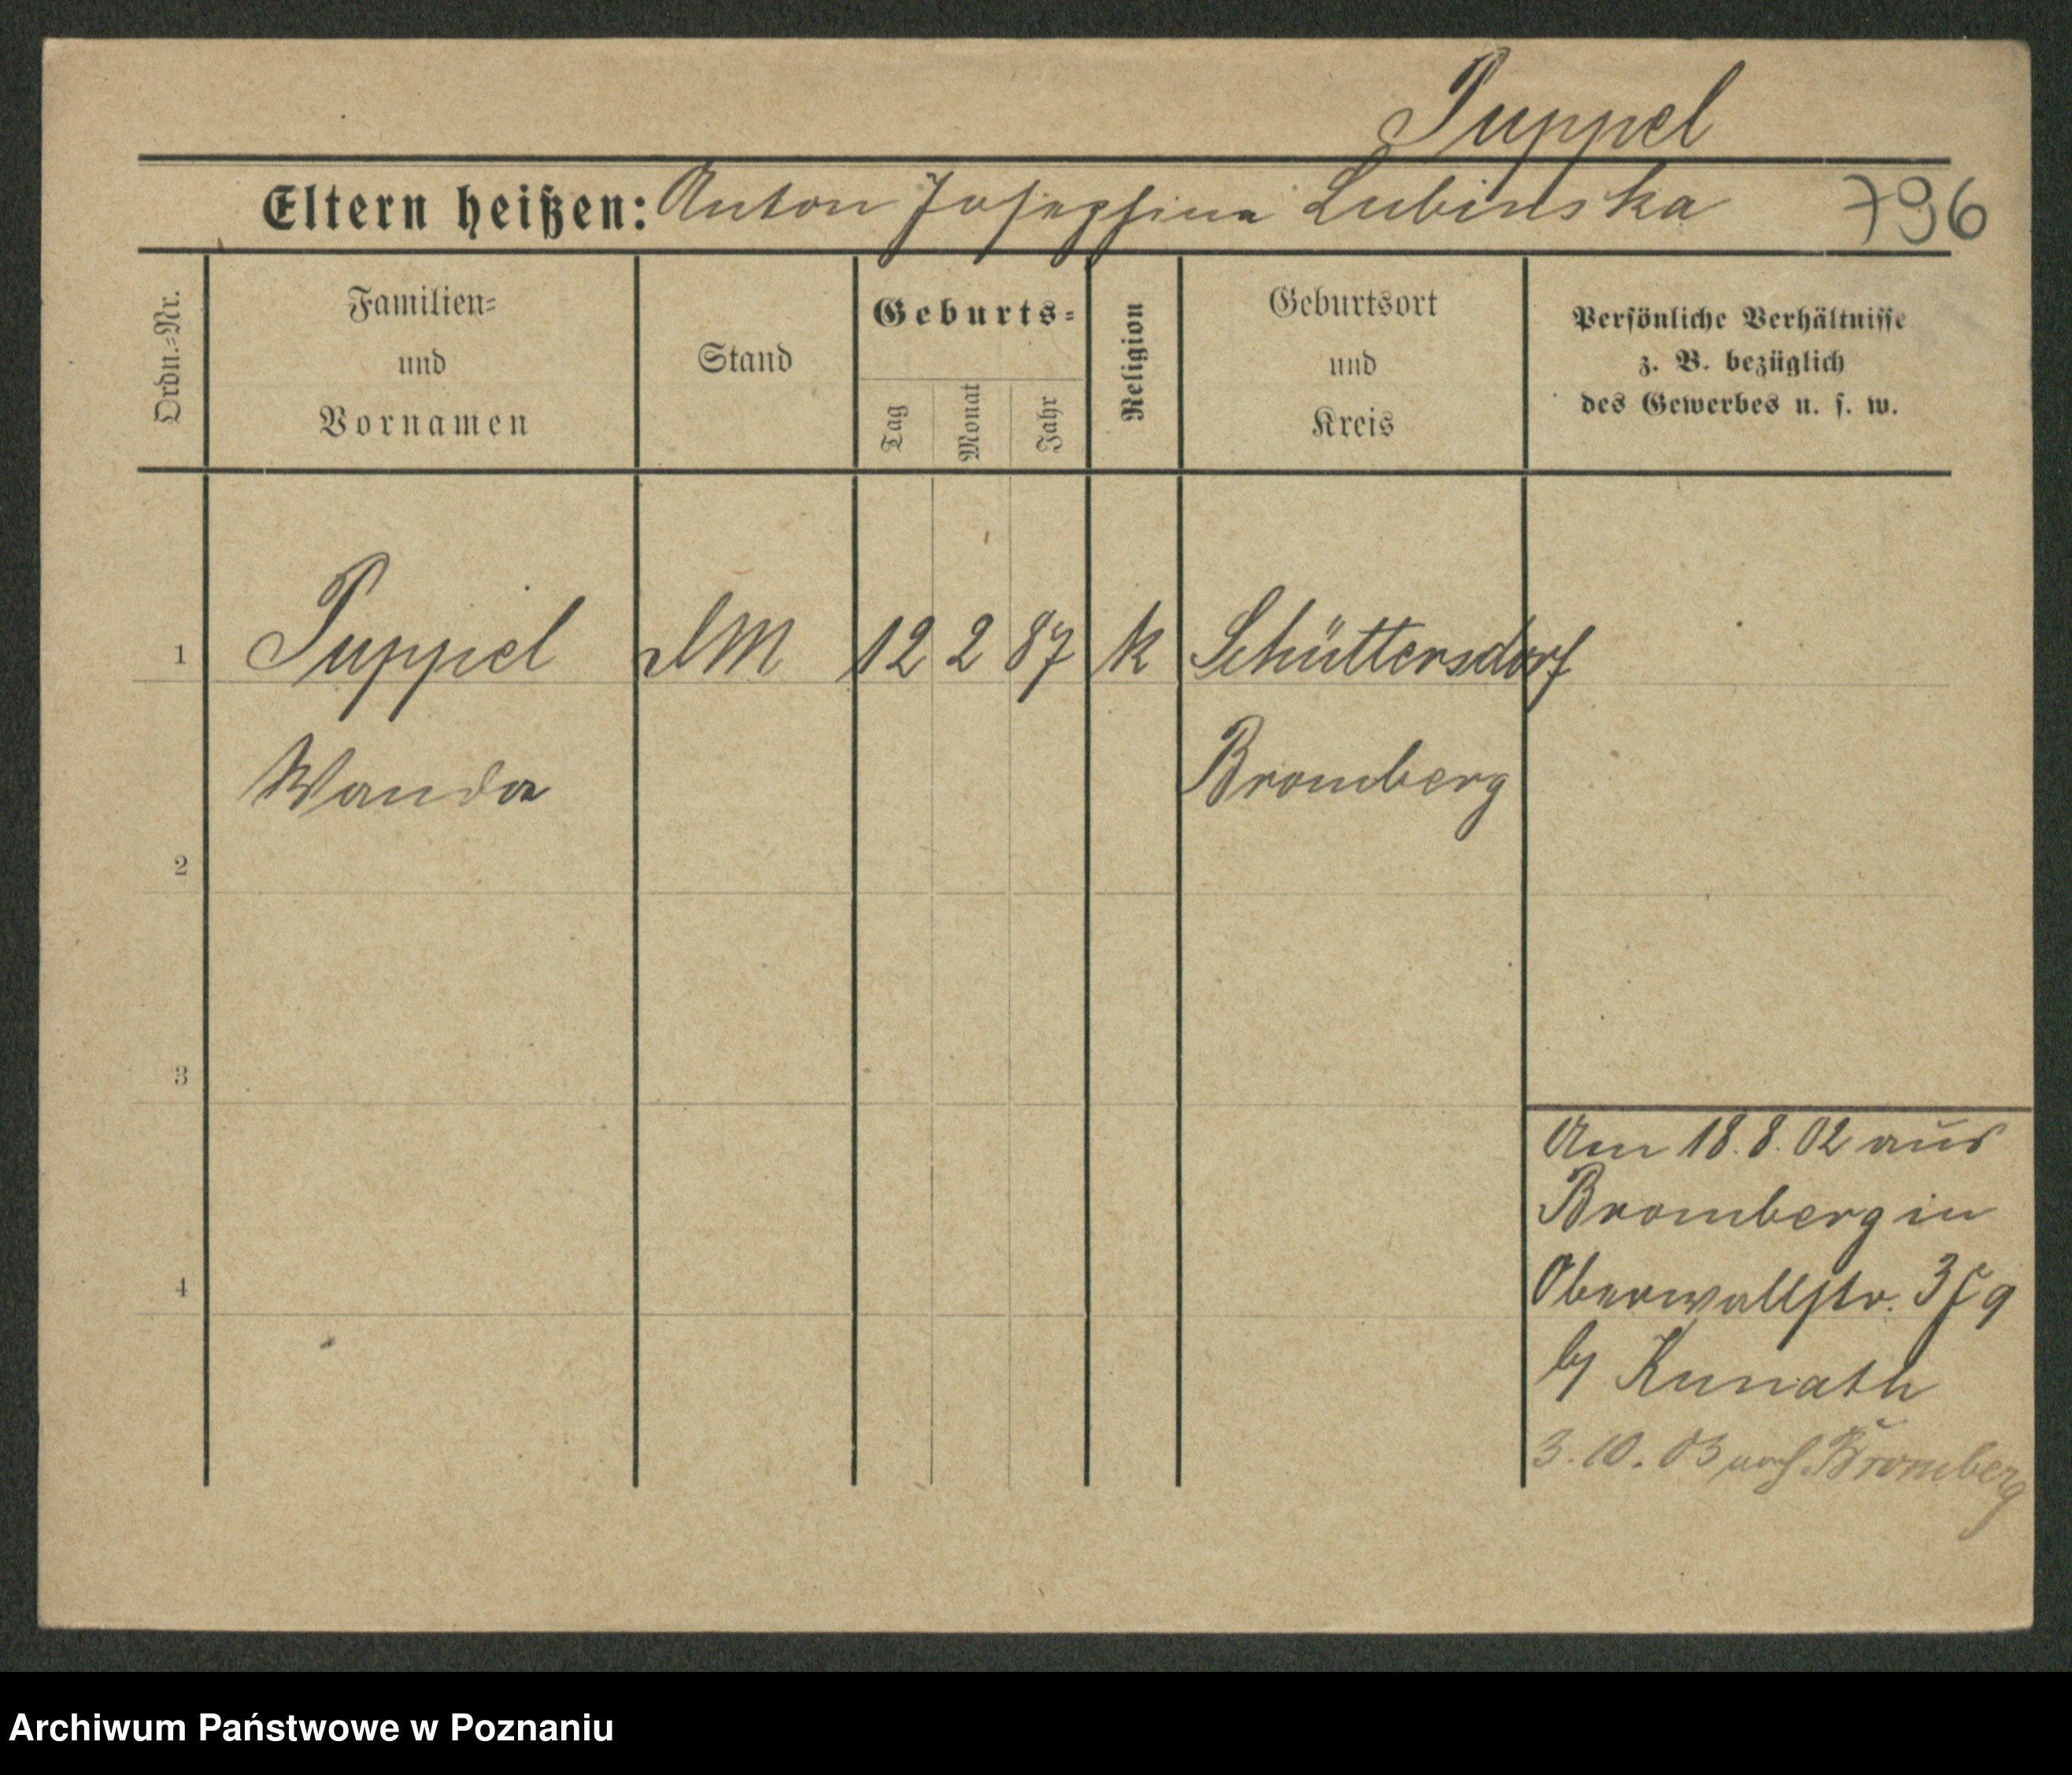 Puppel
Eltern heißen: Anton Josephina Lubinska 796
Ordn.-Nr.
Familien-
und
Vornamen
Stand
Geburts-
Tag
Monat
Jahr
Religion
Geburtsort
und
Kreis
Persönliche Verhältnisse
z. B. bezüglich
des Gewerbes u. s. w.
1 Puppel DM 12 2 87 k Schüttersdorf
Wanda Bromberg
2
3
Am 18.8.02 aus
Bromberg in
4
Oberwallstr.
b/ Kunath
3.10.03 nach Bromberg
Archiwum Państwowe w Poznaniu